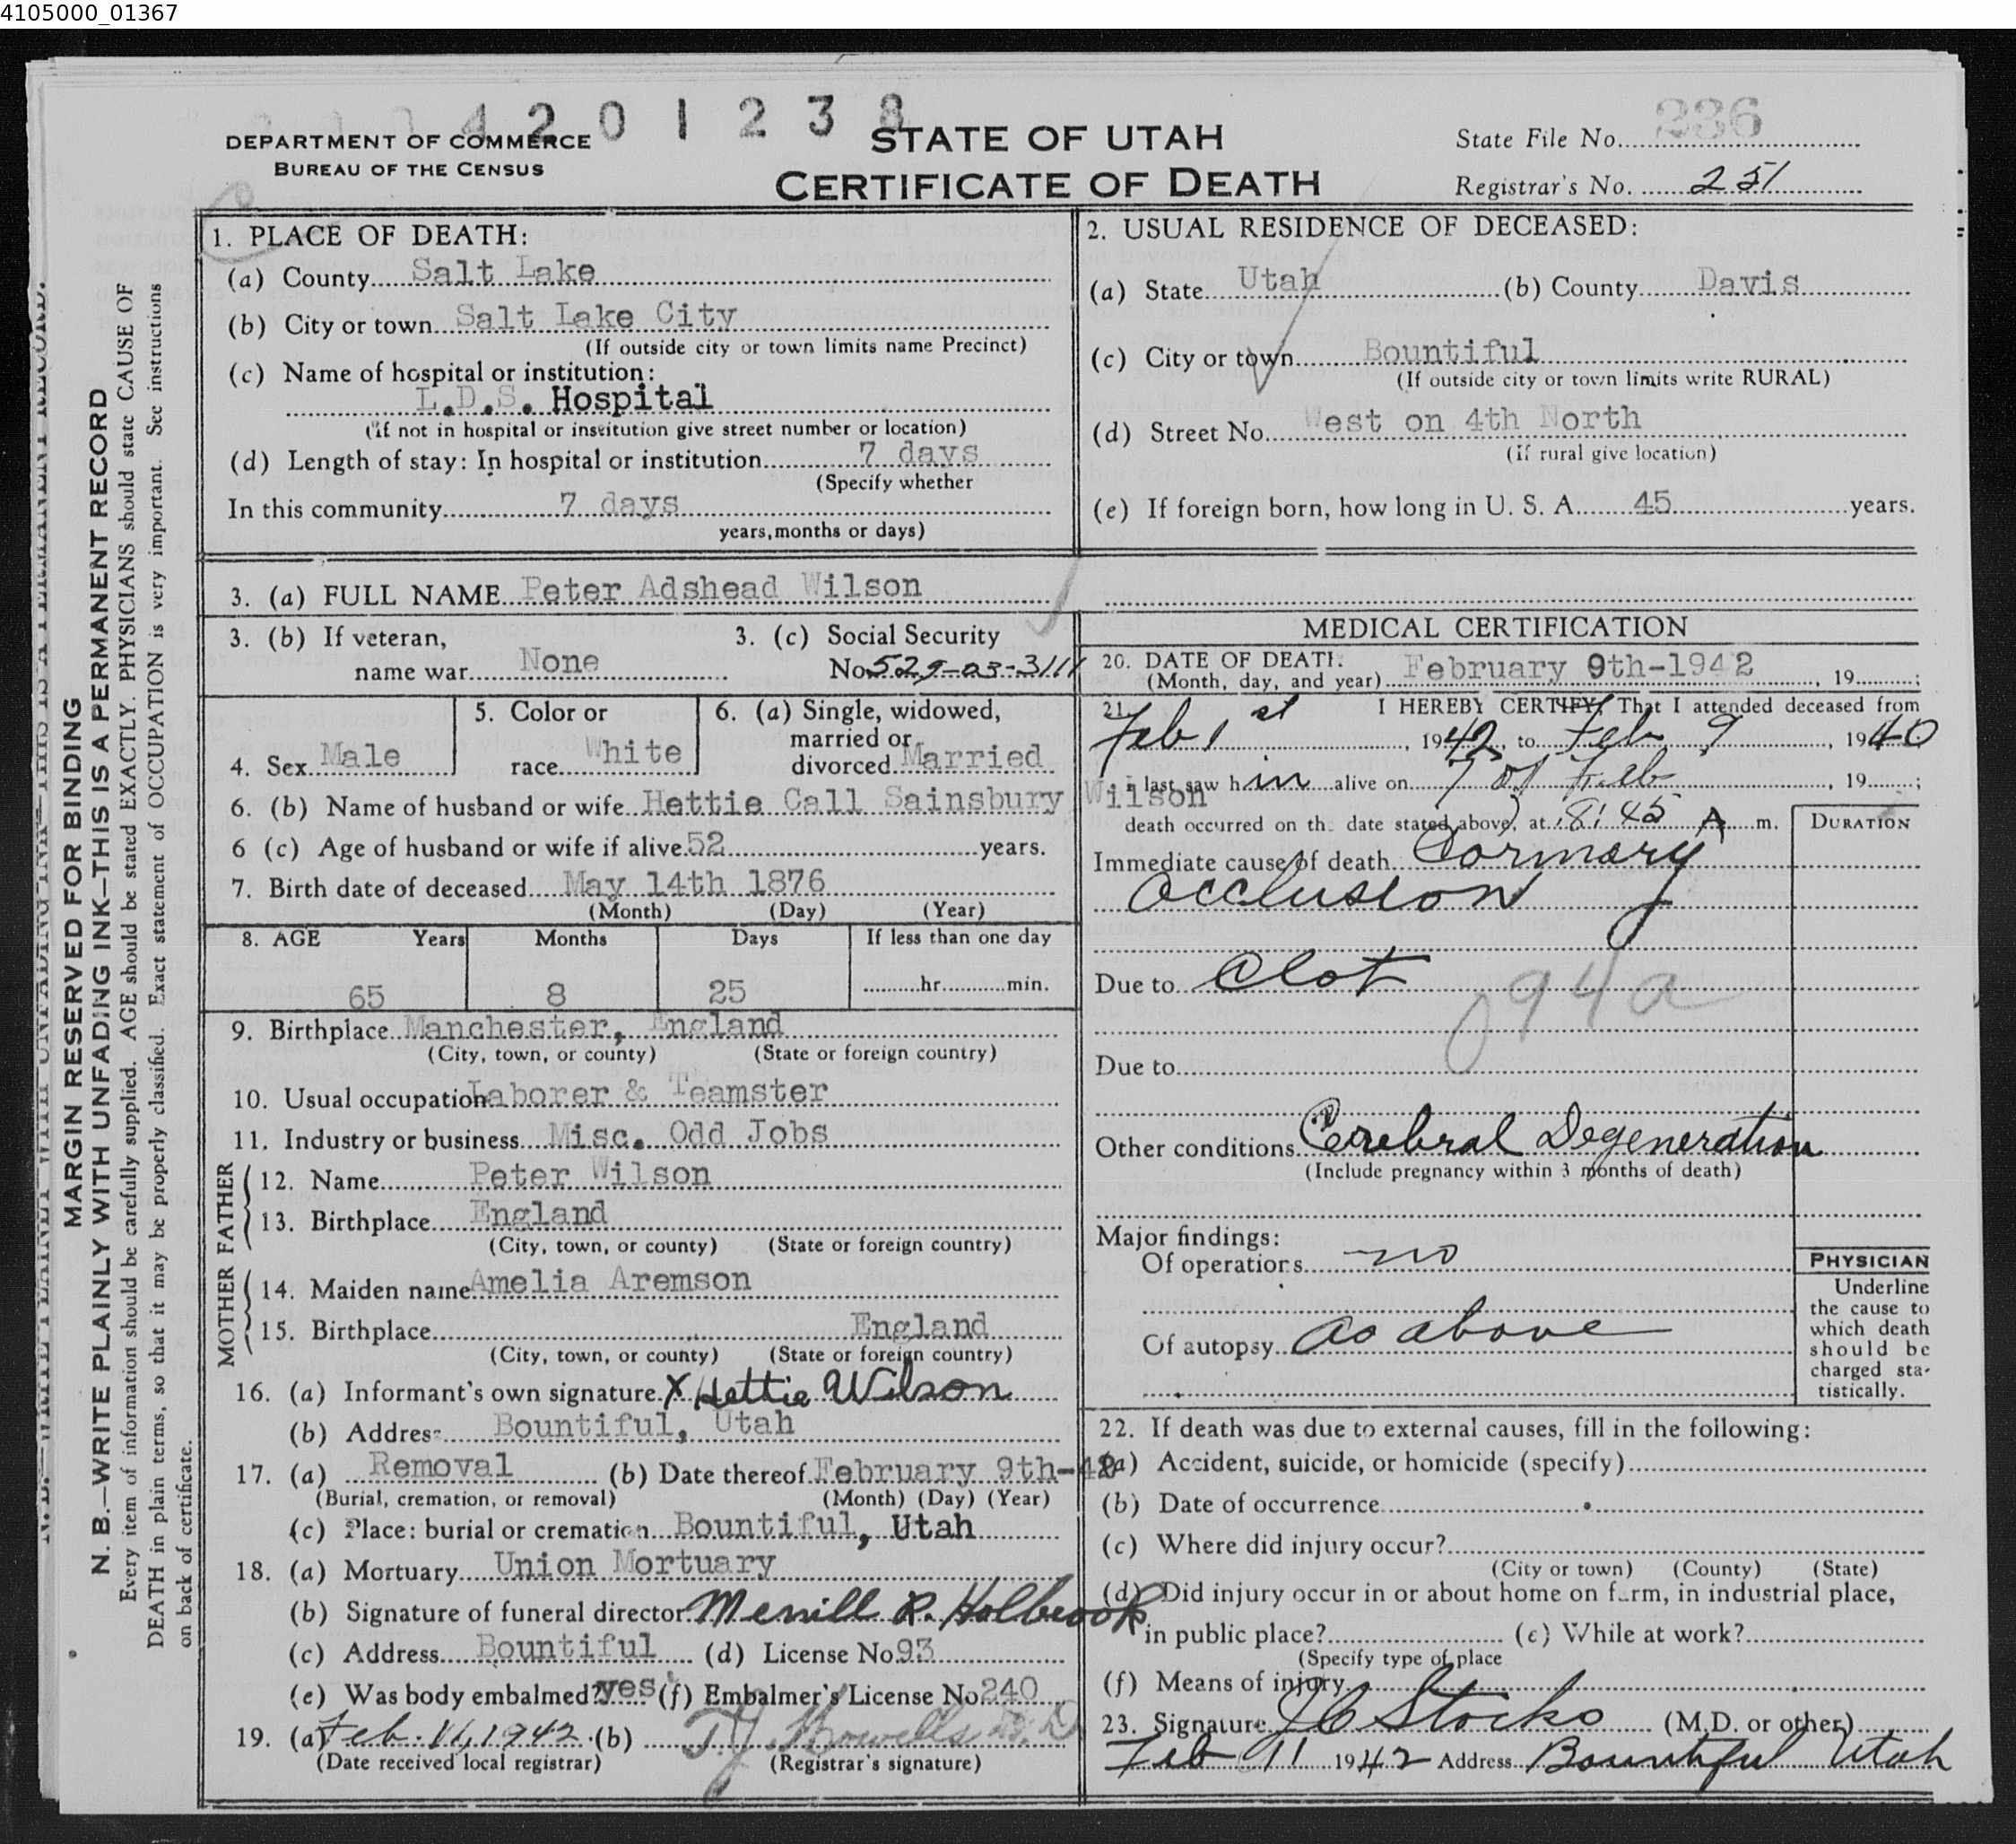 4105000_01367
4 2 0 1 2 3 8
DEPARTMENT OF COMMERCE
BUREAU OF THE CENSUS
STATE OF UTAH
CERTIFICATE OF DEATH
State File No. 236
Registrar's No. 251
N. B.—WRITE PLAINLY WITH UNFADING INK—THIS IS A PERMANENT RECORD.
MARGIN RESERVED FOR BINDING
N. B.—WRITE PLAINLY WITH UNFADING INK—THIS IS A PERMANENT RECORD
Every item of information should be carefully supplied. AGE should be stated EXACTLY. PHYSICIANS should state CAUSE OF
DEATH in plain terms, so that it may be properly classified. Exact statement of OCCUPATION is very important. See instructions
on back of certificate.
1. PLACE OF DEATH:
(a) County Salt Lake
(b) City or town Salt Lake City
(If outside city or town limits name Precinct)
(c) Name of hospital or institution:
L.D.S. Hospital
(If not in hospital or institution give street number or location)
(d) Length of stay: In hospital or institution 7 days
(Specify whether
In this community 7 days
years, months or days)
2. USUAL RESIDENCE OF DECEASED:
(a) State Utah (b) County Davis
(c) City or town Bountiful
(If outside city or town limits write RURAL)
(d) Street No. West on 4th North
(if rural give location)
(e) If foreign born, how long in U. S. A. 45 years.
3. (a) FULL NAME Peter Adshead Wilson
3. (b) If veteran,
name war None
3. (c) Social Security
No. 529-03-3111
4. Sex Male
5. Color or
race White
6. (a) Single, widowed,
married or
divorced Married
6. (b) Name of husband or wife Hettie Call Sainsbury Wilson
6 (c) Age of husband or wife if alive 52 years.
7. Birth date of deceased May 14th 1876
(Month) (Day) (Year)
8. AGE Years Months Days If less than one day
65 8 25 hr. min.
9. Birthplace Manchester, England
(City, town, or county) (State or foreign country)
10. Usual occupation Laborer & Teamster
11. Industry or business Misc. Odd Jobs
FATHER
12. Name Peter Wilson
13. Birthplace England
(City, town, or county) (State or foreign country)
MOTHER
14. Maiden name Amelia Aremson
15. Birthplace England
(City, town, or county) (State or foreign country)
16. (a) Informant's own signature X Hettie Wilson
(b) Address Bountiful, Utah
17. (a) Removal (b) Date thereof February 9th-42
(Burial, cremation, or removal) (Month) (Day) (Year)
(c) Place: burial or cremation Bountiful, Utah
18. (a) Mortuary Union Mortuary
(b) Signature of funeral director Merrill R. Holbrook
(c) Address Bountiful (d) License No. 93
(e) Was body embalmed? yes (f) Embalmer's License No. 240
19. (a) Feb. 11, 1942 (b) T.J. Howells M.D
(Date received local registrar) (Registrar's signature)
MEDICAL CERTIFICATION
20. DATE OF DEATH:
(Month, day, and year) February 9th-1942, 19 ;
21. I HEREBY CERTIFY, That I attended deceased from
Feb 1st, 1942, to Feb 9, 1940
I last saw him alive on 7 of Feb, 19 ;
death occurred on the date stated above, at 8:45 A m.
DURATION
Immediate cause of death Cornary
occlusion
Due to Clot
94a
Due to
Other conditions Cerebral Degeneration
(Include pregnancy within 3 months of death)
Major findings:
Of operations no
Of autopsy as above
PHYSICIAN
Underline
the cause to
which death
should be
charged sta-
tistically.
22. If death was due to external causes, fill in the following:
(a) Accident, suicide, or homicide (specify)
(b) Date of occurrence
(c) Where did injury occur?
(City or town) (County) (State)
(d) Did injury occur in or about home on farm, in industrial place,
in public place? (e) While at work?
(Specify type of place
(f) Means of injury
23. Signature J C Stocks (M.D. or other)
Feb 11 1942 Address Bountiful Utah